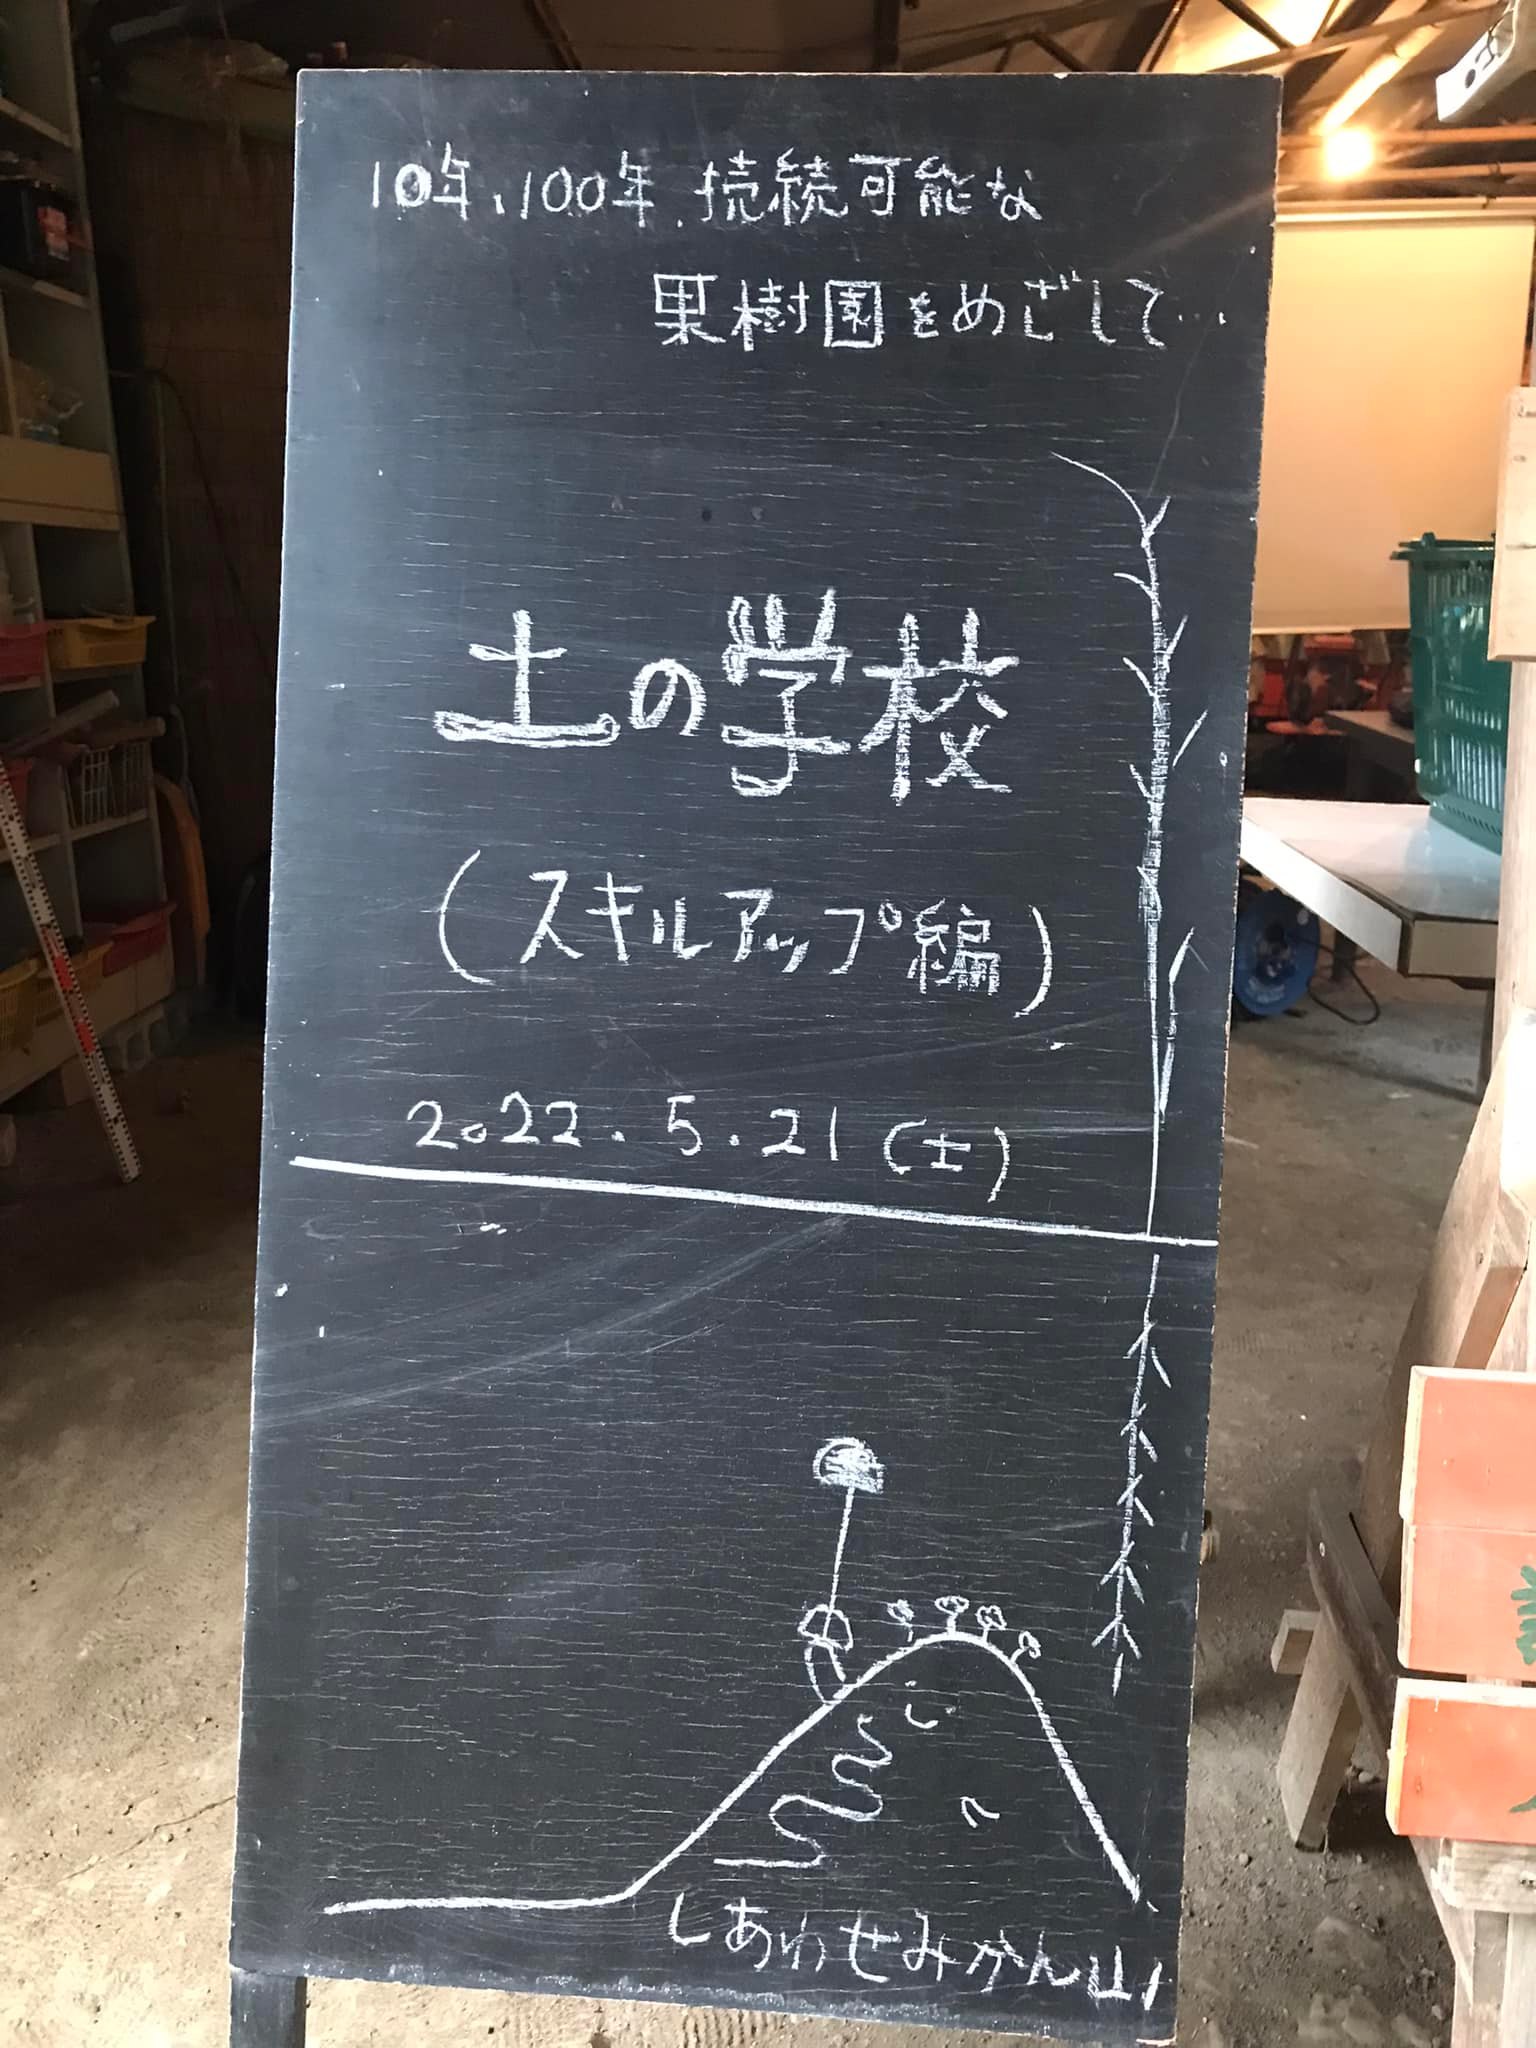 10年、100年、持続可能な
果樹園をめざして…
土の学校
(スキルアップ編)
2022.5.21(土)
しあわせみかん山